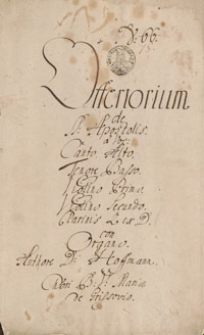 No. 66.
Offertorium.
de
SS. Apostolis.
à
Canto Alto.
Tenore Basso.
Violino Primo.
Violino Secundo.
Clarinis 2 ex D.
con
Organo.
Authore D. Hoffmann.
B. V. Mariæ
de